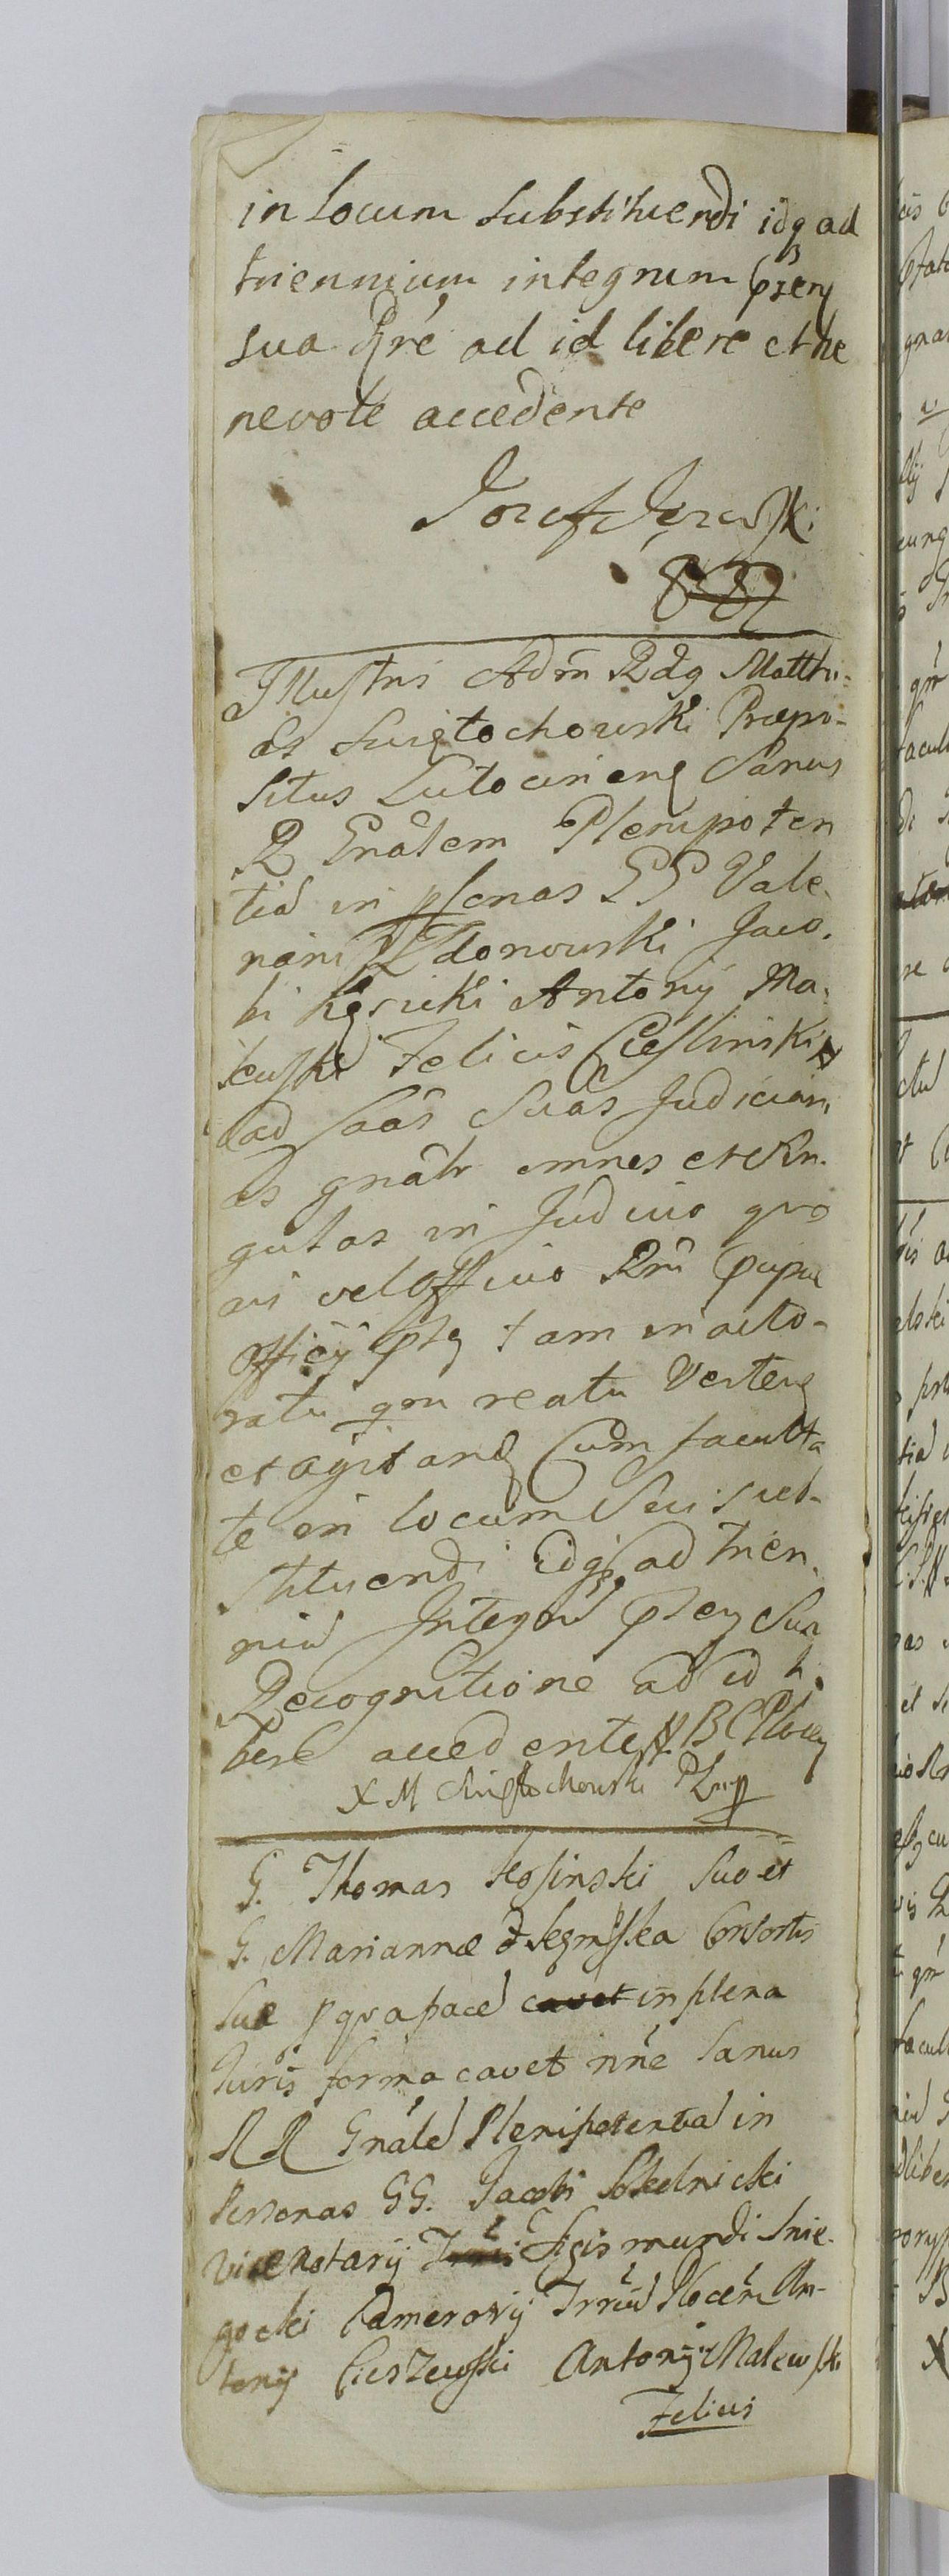 in locum substituendi idq ad
triennium integrum pſenj
sua Rgré ad id libere et be
nevole accedente
Jozef
Illustris Adm Rdg Matthi=
as Swiętochowski Præpo-
situs Lutocinenſ Sanus
R Gnâlem Plenipoten
tiã in pſonas GG Vale-
riani Zdonowski Jaco-
bi Kęsicki Antonÿ Ma-
lewski Felicis Cieſlinski
ad Cãas Suas Judiciari
as gnâlr omnes et sin-
gulas in Judicio quo
vis vel Officio Rni
Officÿ tam in acto-
ratu qm reatu Verten
et agitanđ Cum faculta
te in locum Sui sub-
stituendi Idq ad trien-
niũ Integrũ pſenj Sua
Recognitione ad id li
bere accedente
X M Swiętochowski
G. Thomas Kosinski Suo et
G. Mariannæ đ Consortis
Suæ p qva pace cavet in plena
Juris forma cavet nñe Sanus
R R Gnâlẽ Plenipotentiã in
Personas GG. Jacobi
Vicenotarÿ Sigismundi Snie-
gocki Camerarÿ Trrũ Plocen An-
tonÿ Cieszewski Antonÿ Malewski
Felicis